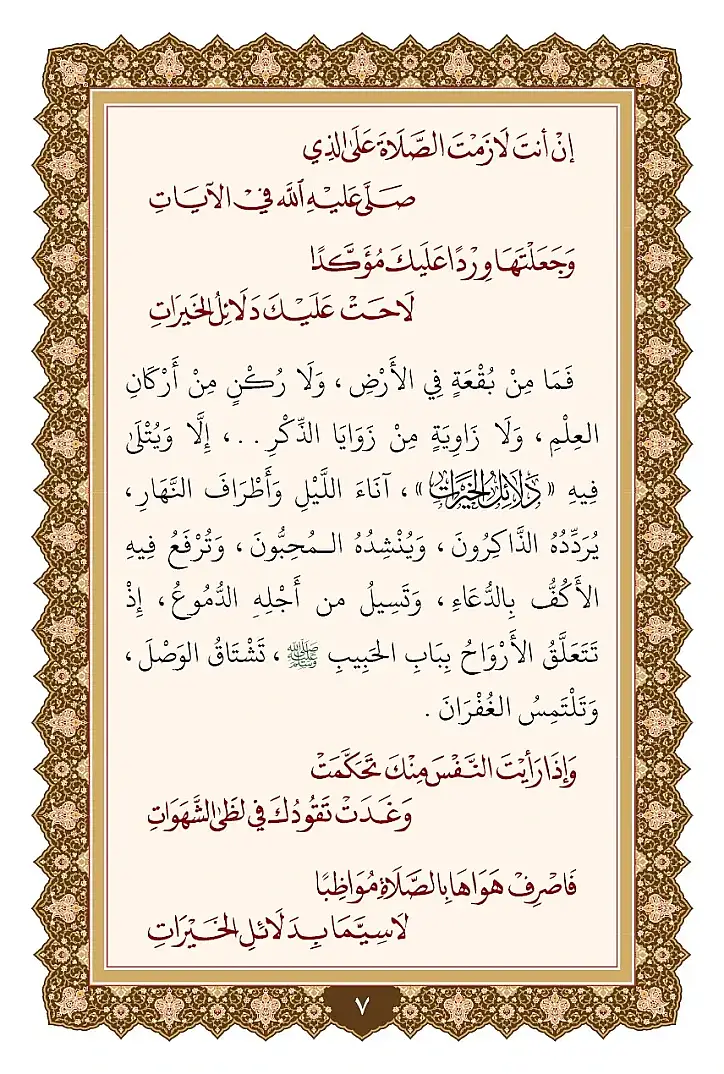 إِنْ أَنتَ لَازَمْتَ الصَّلَاةَ عَلَى الذِي
صَلَّى عَلَيْهِ اللَّه فِي الآيَاتِ
وَجَعَلْتَهَا وِرْدًا عَلَيكَ مُؤَكَّدًا
لَاحَتْ عَلَيْكَ دَلَائِلُ الخَيرَاتِ
فَمَا مِنْ بُقْعَةٍ فِي الأَرْضِ، وَلَا رُكْنٍ مِنْ أَرْكَانِ
العِلْمِ، وَلَا زَاوِيَةٍ مِنْ زَوَايَا الذِّكْرِ ..، إِلَّا وَيُتْلَى
فِيهِ «دَلَائِلُ الخَيْرَاتِ»، آنَاءَ اللَّيْلِ وَأَطْرَافَ النَّهَارِ،
يُرَدِّدُهُ الذَّاكِرُونَ، وَيُنْشِدُهُ الـمُحِبُّونَ، وَتُرْفَعُ فِيهِ
الأَكُفُّ بِالدُّعَاءِ، وَتَسِيلُ من أَجْلِهِ الدُّمُوعُ، إِذْ
تَتَعَلَّقُ الأَرْوَاحُ بِبَابِ الحَبِيبِ ﷺ، تَشْتَاقُ الوَصْلَ،
وَتَلْتَمِسُ الغُفْرَانَ .
وَإِذَا رَأَيْتَ النَّفْسَ مِنْكَ تَحَكَّمَتْ
وَغَدَتْ تَقُودُكَ فِي لَظَى الشَّهَوَاتِ
فَاصْرِفْ هَوَاهَا بِالصَّلَاةِ مُوَاظِبًا
لَاسِيَّمَا بِدَلَائِلِ الخَيْرَاتِ
٧